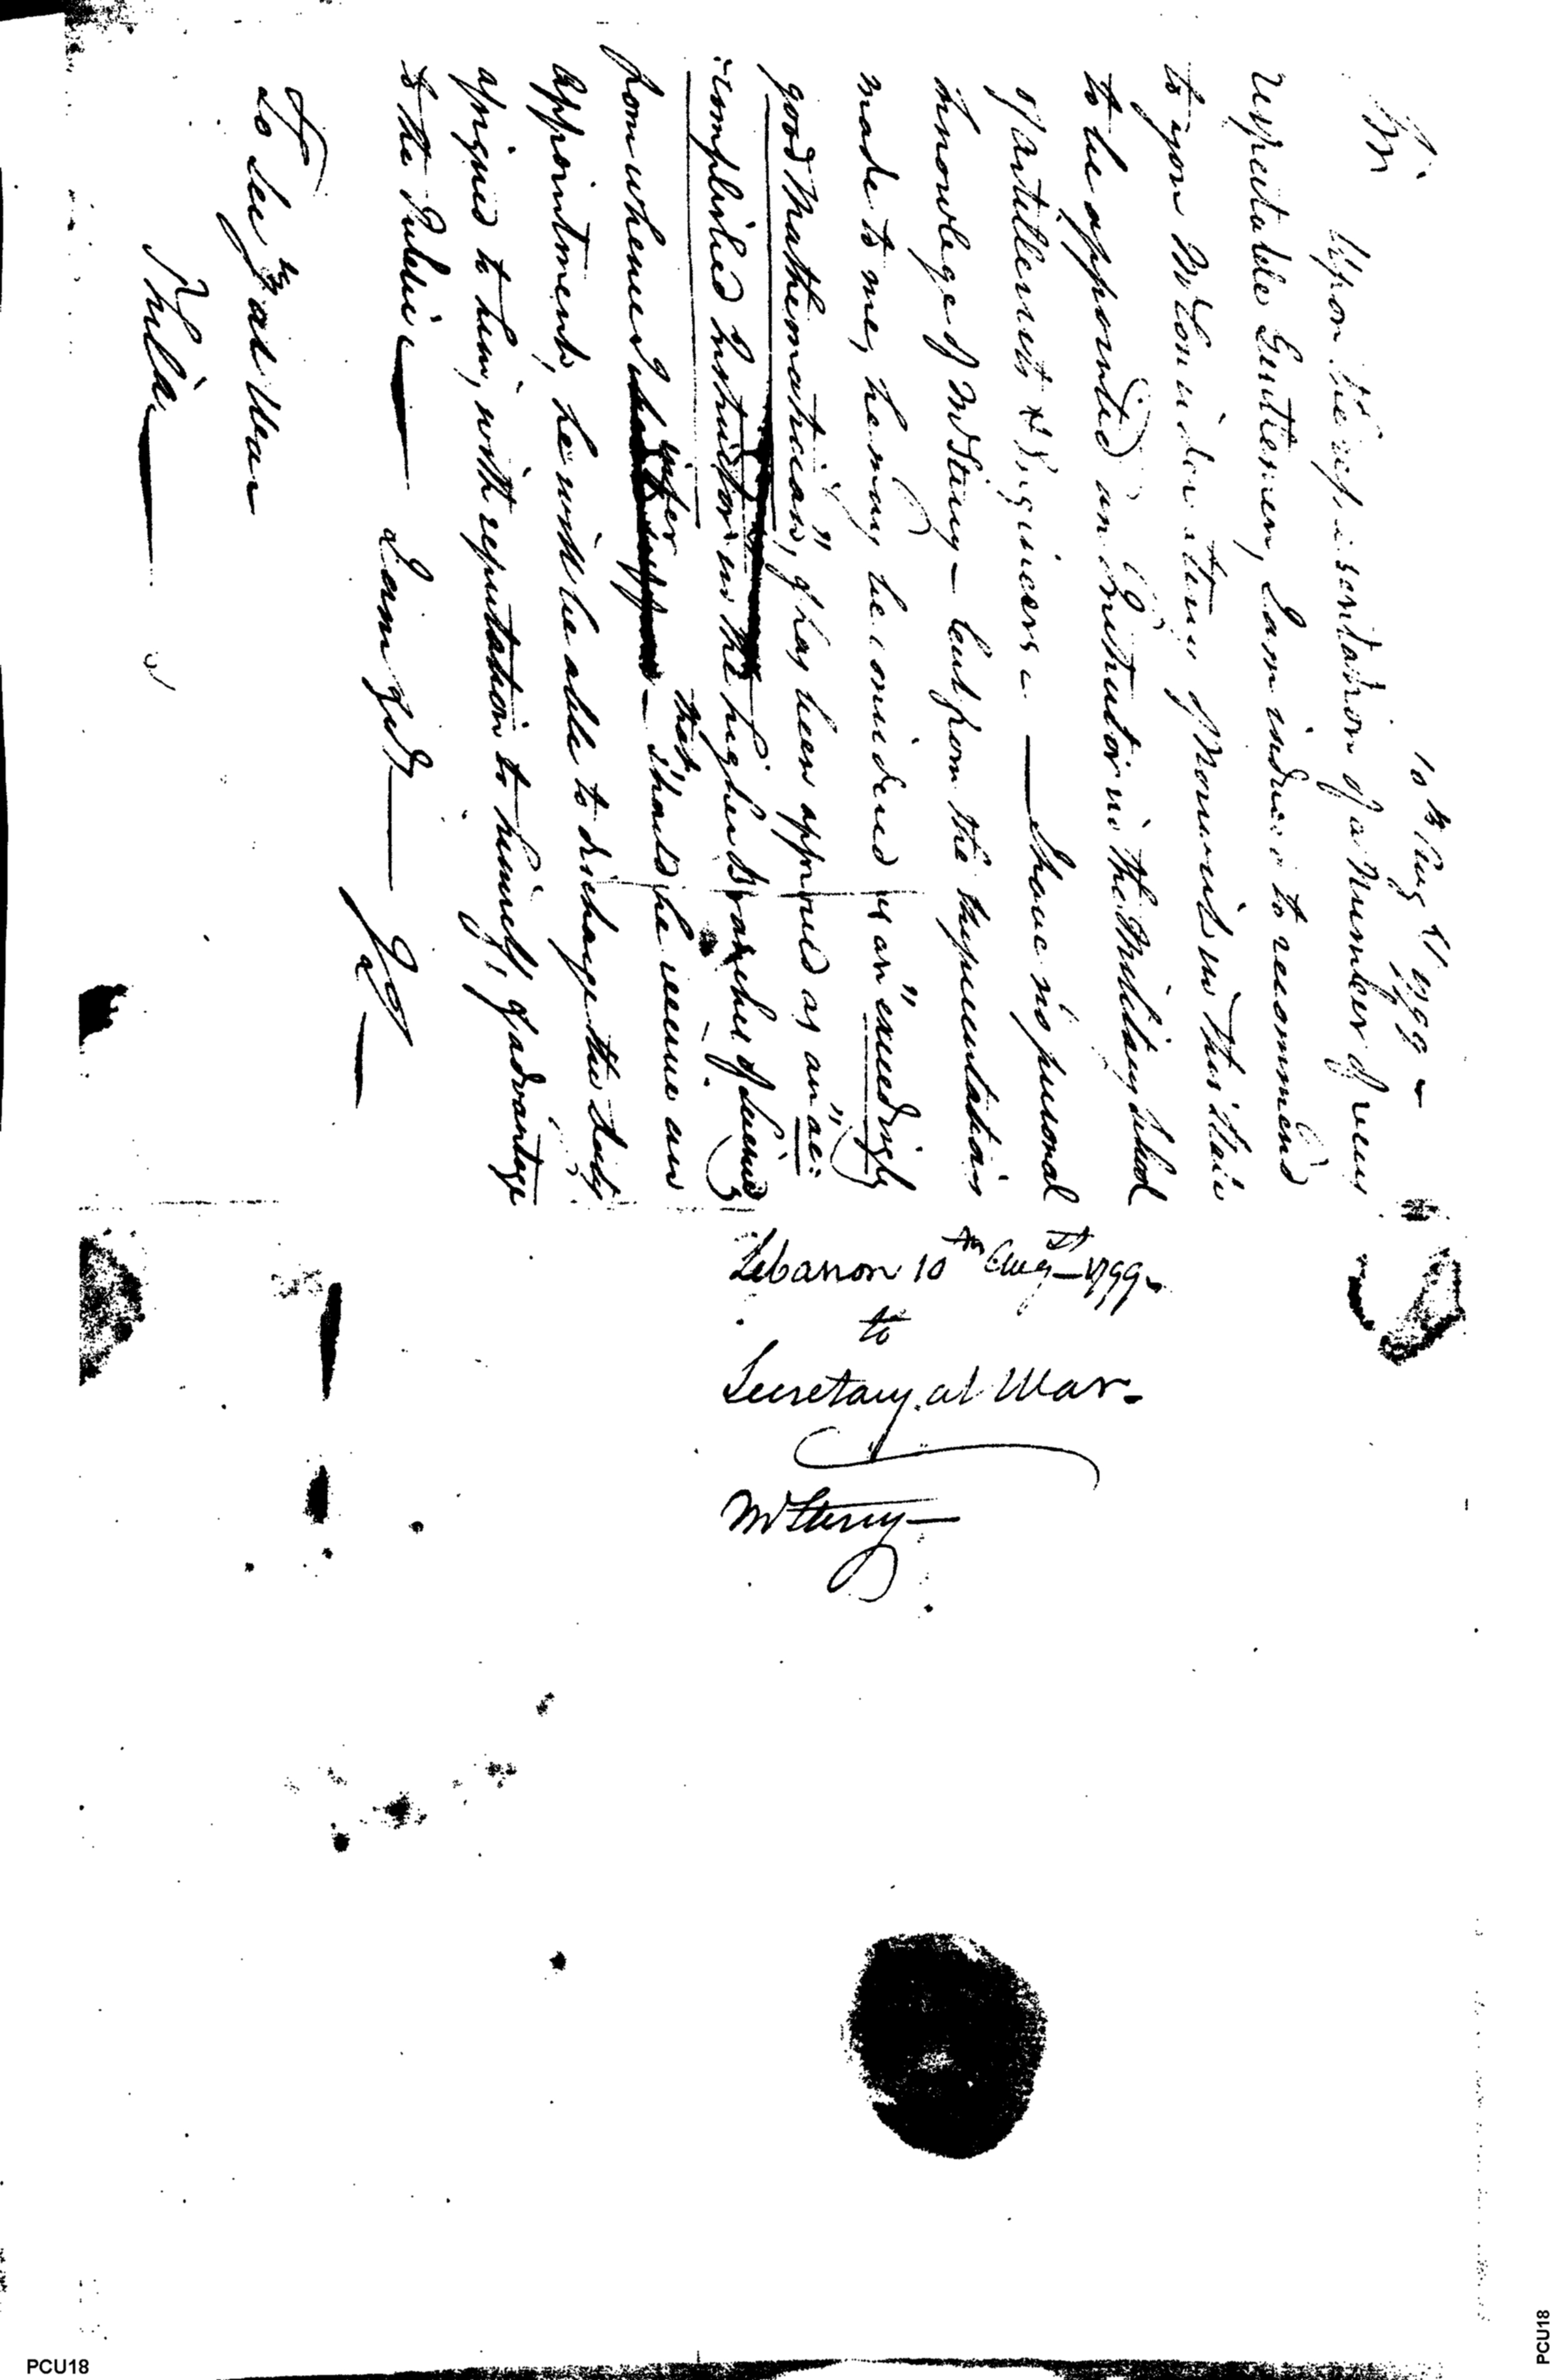 10th Augst 1799 –
Sir
Upon the representation of a Number of very
respectable Gentlemen, I am induced to recommend
to your Consideration, of Norwich in this State
to be appointed an Instructor in the Military School
of Artillerists & Engineers — I have no personal
knowlege of Mr Sterry – but from the representation
made to me, he may be considered as an "exceedingly
good Mathematician", & has been approved as an "ac:
:complished Instructor in the higher branches of Science"
from whence I infer – that Should he receive an
appointment, he will be able to discharge the duty
assigned to him, with reputation to himself, & advantage
to the Public —
I am &c
To Secty at War
Phila
Lebanon 10th Augst 1799 –
to
Secretary at War –
Mr Sterry –
PCU18
PCU18